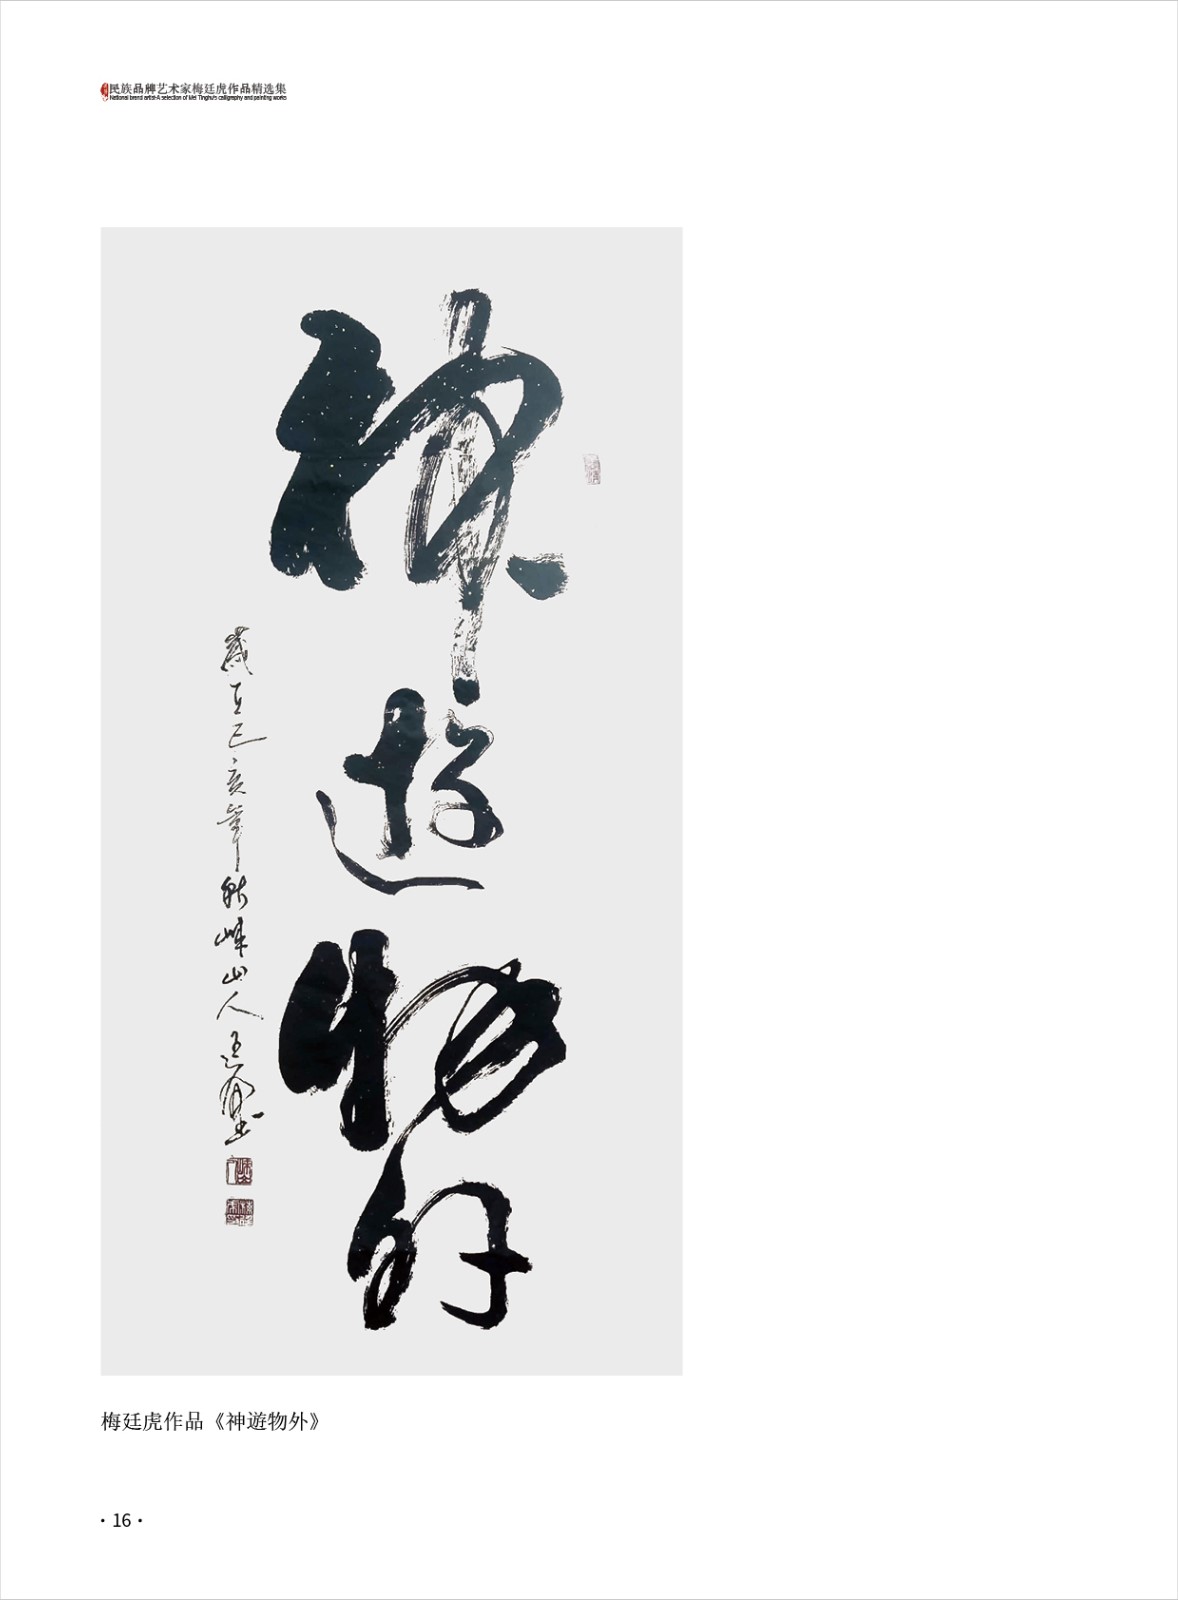 民族品牌艺术家梅廷虎作品精选集
National brand artist-A selection of Mei Tinghu's calligraphy and painting works
神遊物外
歲在己亥年秋峰山人廷虎
梅廷虎作品《神遊物外》
· 16 ·